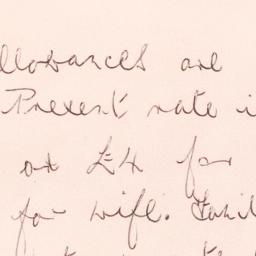 llowances are
Present rate i
or £4 for
for wife. Fami